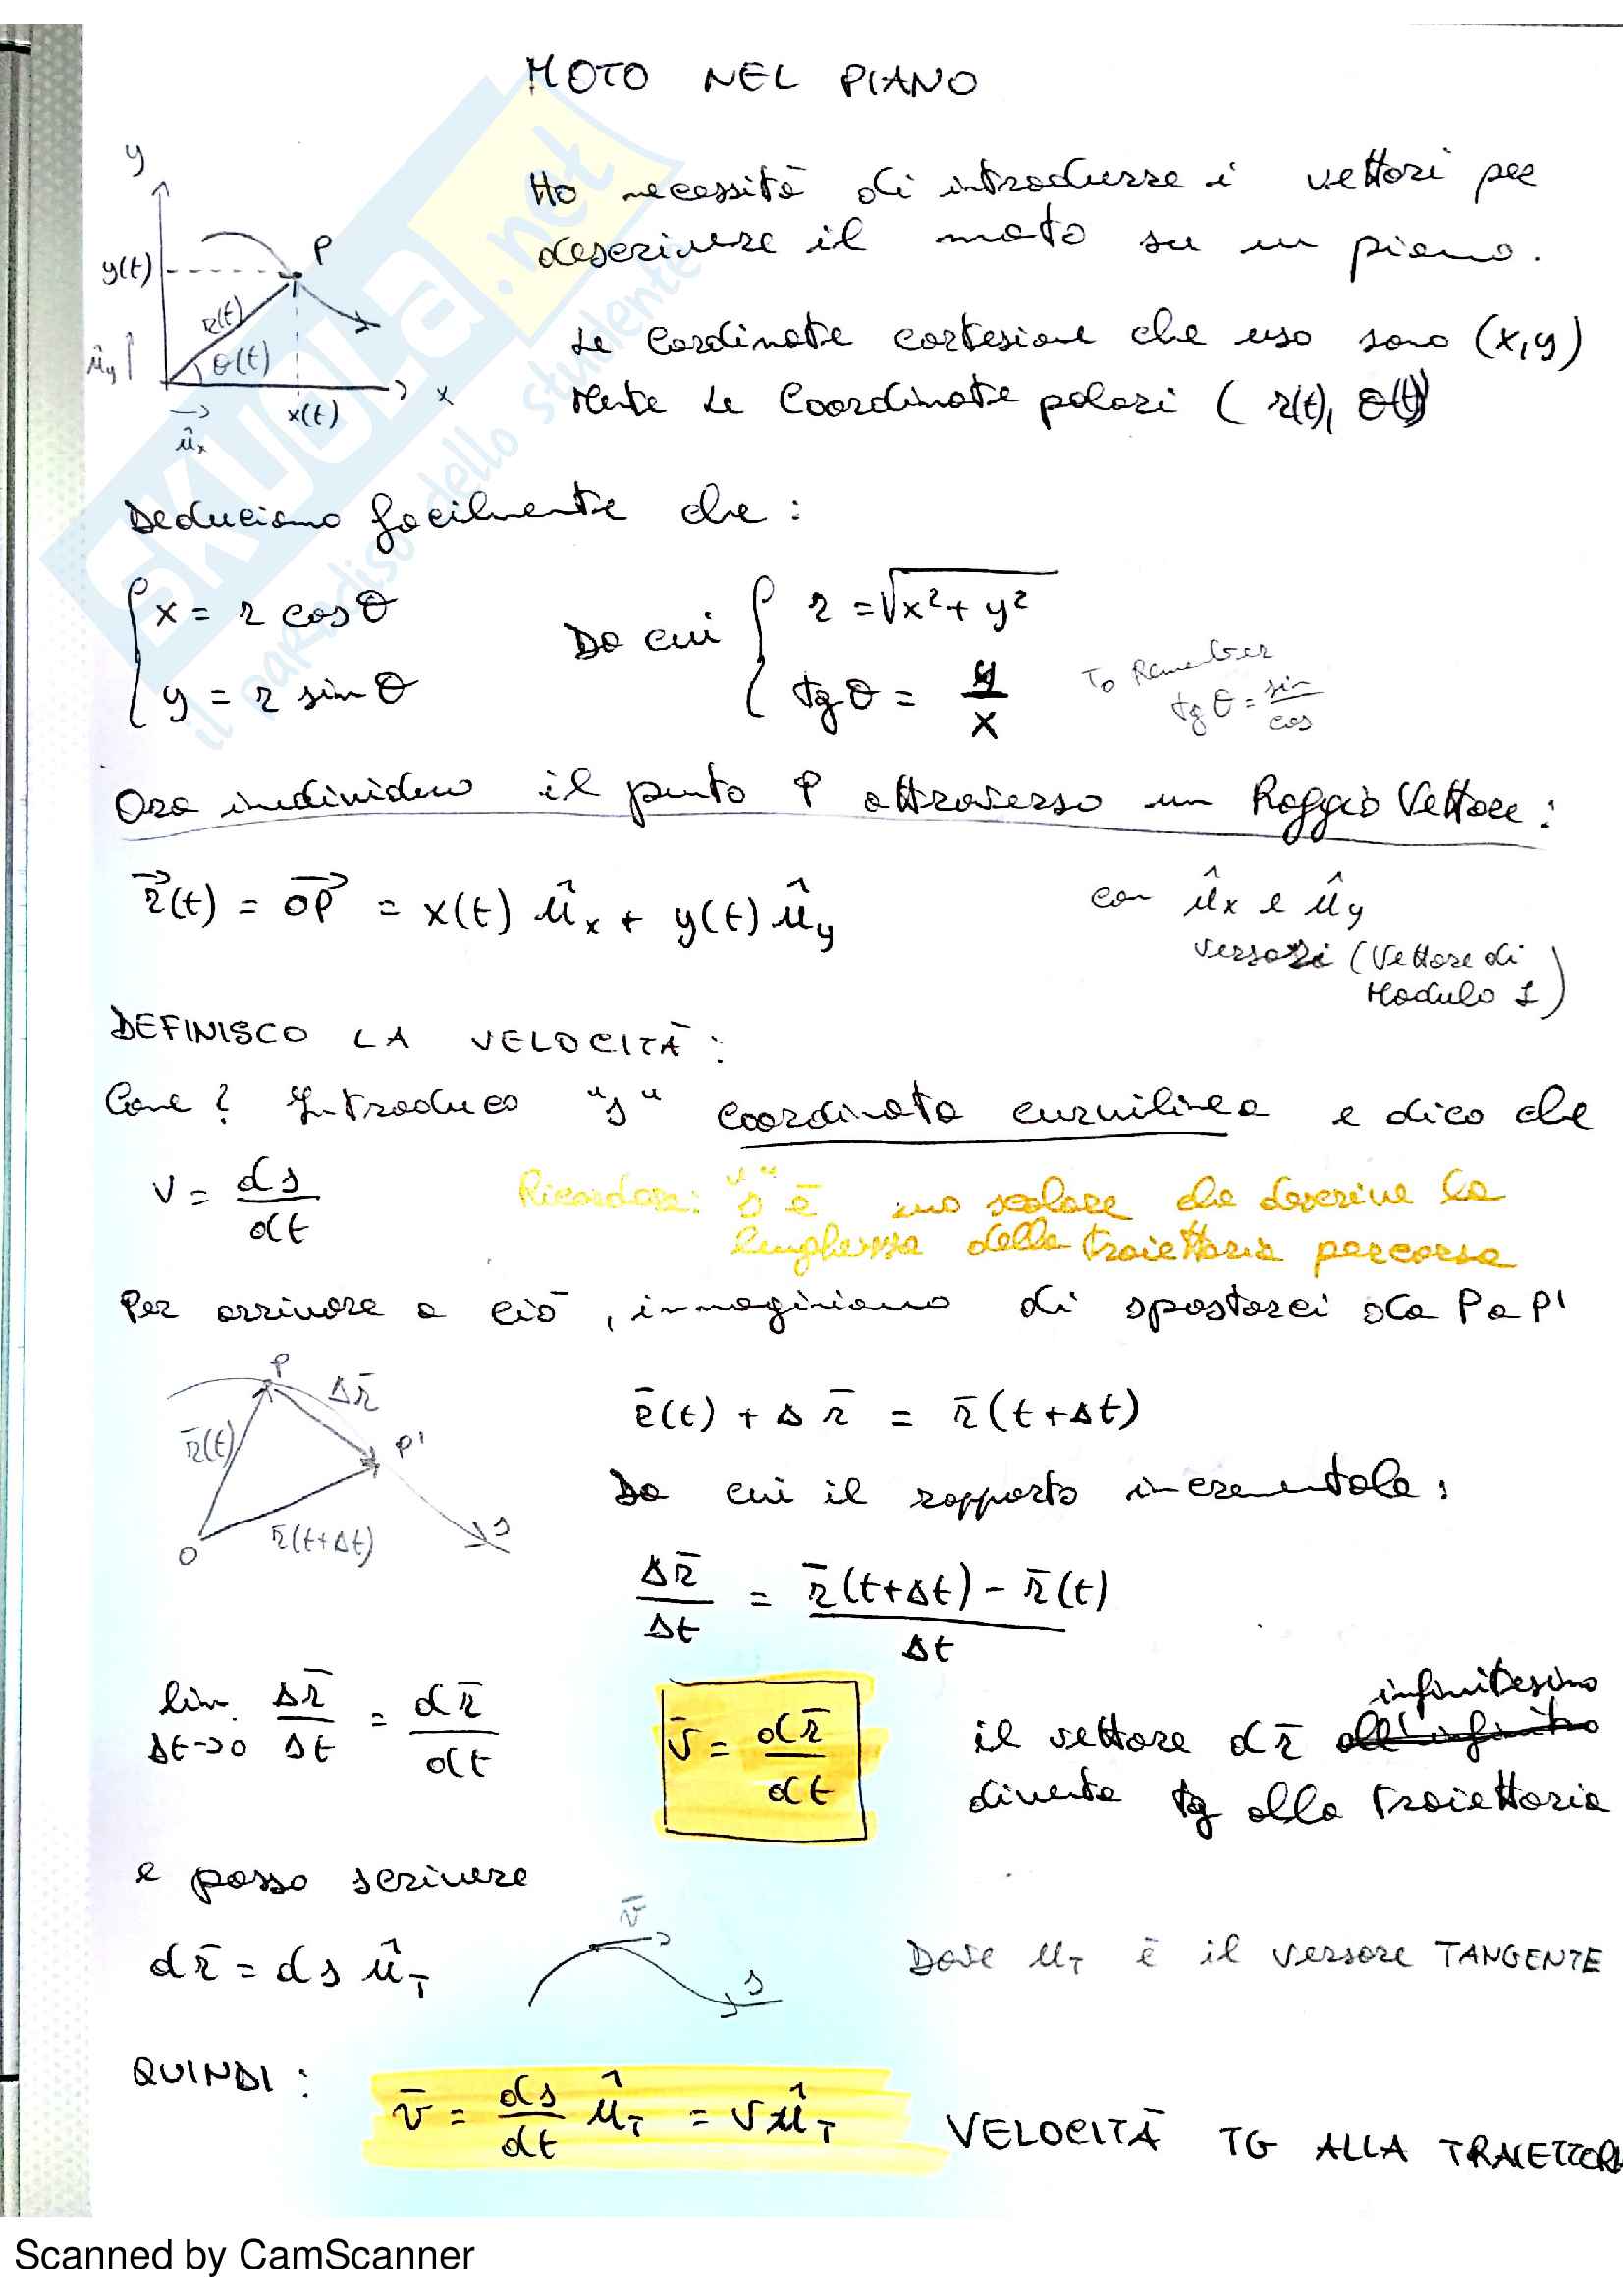 MOTO NEL PIANO
y
P
y(t)
r(t)
θ(t)
ûy
x
x(t)
ûx
Ho necessità di introdurre i vettori per
descrivere il moto su un piano.
Le Cordinate cartesiane che uso sono (x,y)
Mente Le Coordinate polari ( r(t), θ(t)
Deduciamo facilmente che :
x = r cosθ
y = r sinθ
Da cui
r = √x²+ y²
tgθ = y/x
To Remember
tgθ = sin/cos
Ora individuo il punto P attraverso un Raggio Vettore :
r⃗(t) = OP⃗ = x(t) ûx + y(t) ûy
con ûx e ûy
versori (Vettore di
Modulo 1)
DEFINISCO LA VELOCITÀ :
Come ? Introduco "s" coordinata curvilinea e dico che
v = ds/dt
Ricordare: "s" è uno scalare che descrive la
lunghezza della traiettoria percorsa
Per arrivare a ciò , immaginiamo di spostarci da P a P'
P
Δr̄
r̄(t)
P'
O
r̄(t+Δt)
s
r̄(t) + Δ r̄ = r̄ (t+Δt)
Da cui il rapporto incrementale :
Δr̄/Δt = r̄(t+Δt) - r̄(t)/Δt
lim Δt→0 Δr̄/Δt = dr̄/dt
v̄ = dr̄/dt
il vettore dr̄ infinitesimo
diventa tg alla traiettoria
e posso scrivere
dr̄ = ds ûT
v̄
s
Dove uT è il versore TANGENTE
QUINDI :
v̄ = ds/dt ûT = v ûT
VELOCITÀ TG ALLA TRAIETTORIA
SKUOLA.net
il paradiso dello studente
Scanned by CamScanner